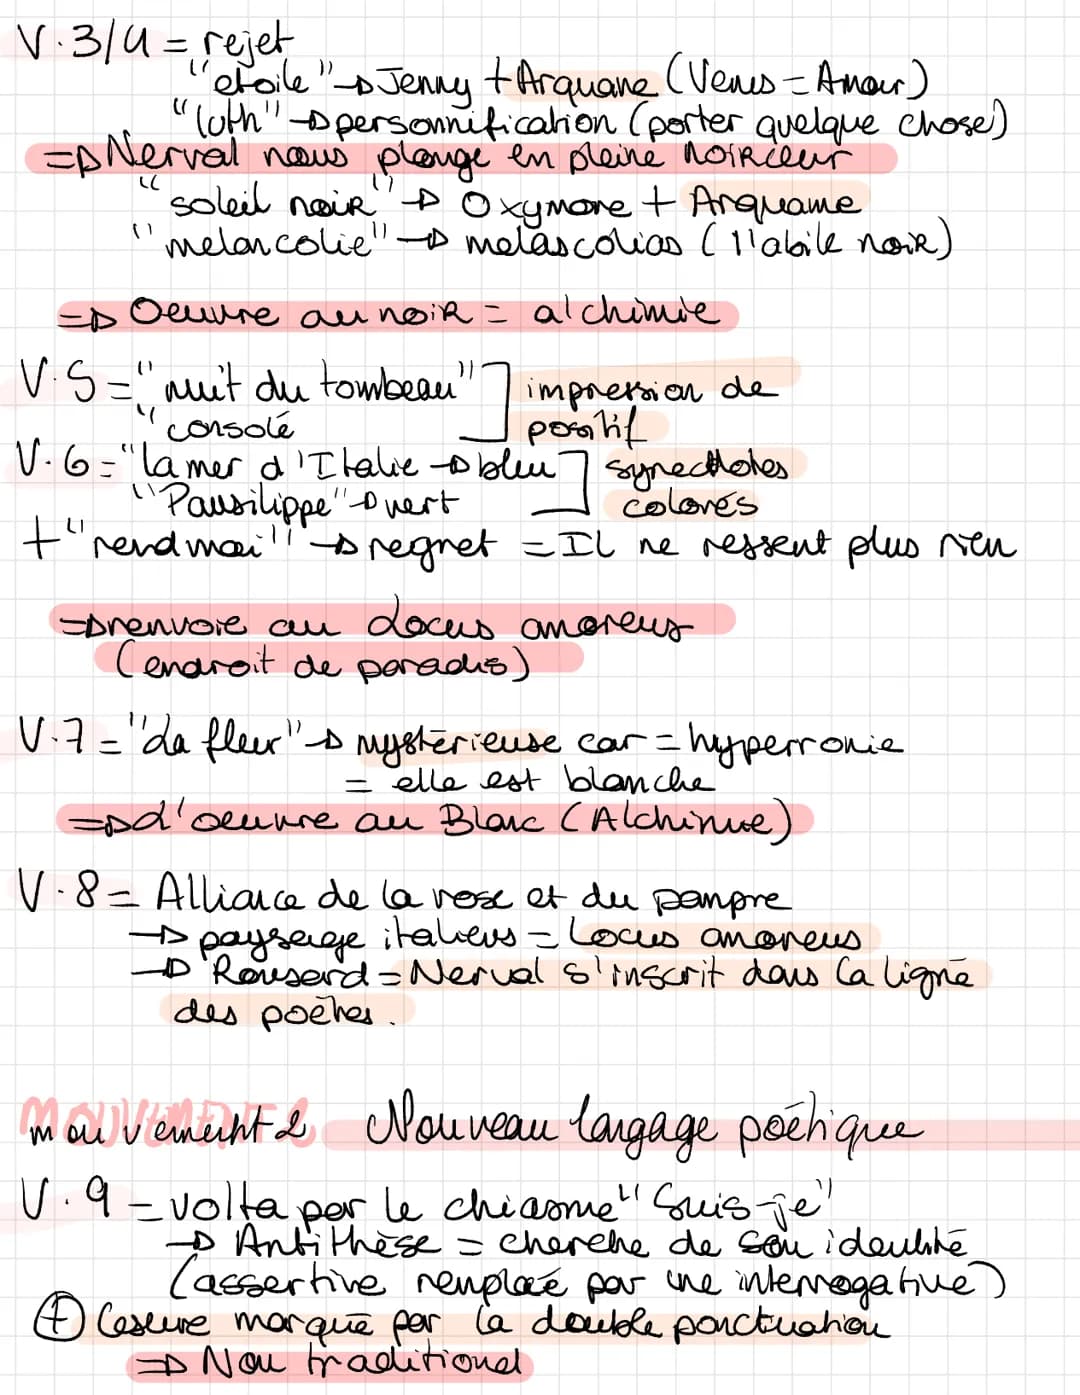 V.3/4 = rejet
"etoile" → Jenny + Arquane (Venus = Amour)
"luth" → personnification (porter quelque chose)
⇒ Nerval nous plonge en pleine noirceur
"soleil noir" → Oxymore + Arquame
"melancolie" → melascolias (l'abile noir)
⇒ Oeuvre au noir = alchimie
V.5 = "nuit du tombeau" ] impression de
"consolé ] positif
V.6 = "la mer d'Italie → bleu ] synecdotes
"Pausilippe" → vert ] colorés
+ "rend moi" → regret = Il ne ressent plus rien
⇒ renvoie au Locus amoreus
(endroit de paradis)
V.7 = "La fleur" → mystérieuse car = hyperronie
= elle est blanche
⇒ d'oeuvre au Blanc (Alchimie)
V.8 = Alliance de la rose et du pampre
→ paysage italiens = Locus amoreus
→ Ronsard = Nerval s'inscrit dans la ligné
des poètes.
mouvement 2 Nouveau langage poétique
V.9 = volta par le chiasme "Suis-je"
→ Antithèse = cherche de son identité
(assertive remplacé par une interrogative)
⊕ Cesure marqué par la double ponctuation
⇒ Non traditionel